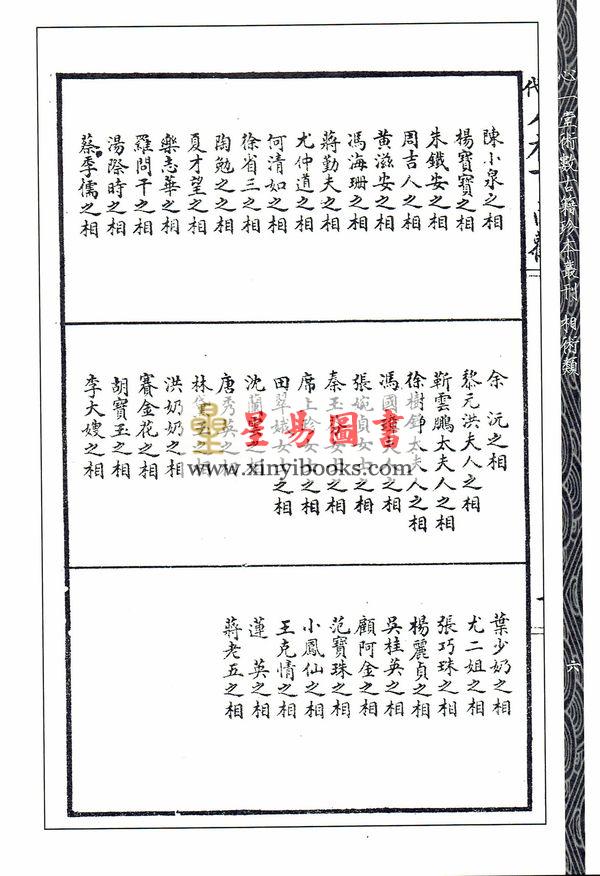 心一堂術數古籍珍本叢刊 相術類
六
陳小泉之相
楊寶寶之相
朱鐵安之相
周吉人之相
黃滋安之相
馮海珊之相
蔣勤夫之相
尤仲道之相
何清如之相
徐省三之相
陶勉之之相
夏才望之相
樂志華之相
羅問干之相
湯際時之相
蔡季儒之相
余沅之相
黎元洪夫人之相
靳雲鵬太夫人之相
徐樹錚太夫人之相
馮國璋夫人之相
張婉貞女士之相
秦玉
女士之相
席上珍女士之相
田翠娥女士之相
沈蘭
之相
唐秀英之相
林黛玉之相
洪奶奶之相
賽金花之相
胡寶玉之相
李大嫂之相
葉少奶之相
尤二姐之相
張巧珠之相
楊麗貞之相
吳桂英之相
顧阿金之相
范寶珠之相
小鳳仙之相
王克情之相
蓮英之相
蔣老五之相
星易圖書
www.xinyibooks.com